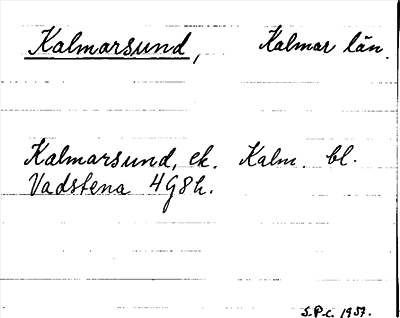 Kalmarsund, Kalmar län.
Kalmarsund, ek. Kalm. bl.
Vadstena 4G8h.
S.P.c. 1957.